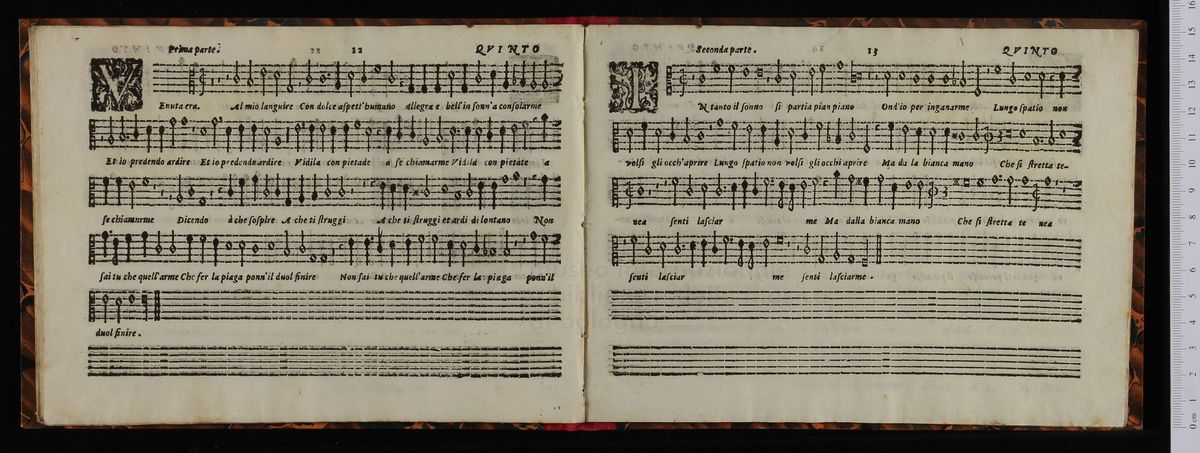 Prima parte. 12 QVINTO
VEnuta era. Al mio languire Con dolce aspett'humano Allegra e bell'in sonn'a consolarme
Et io prēdendo ardire Et io prēdendo ardire Vidila con pietade a se chiamarme Vidila con pietate a
se chiamarme Dicendo à che sospire A che ti struggi A che ti struggi et ardi di lontano Non
sai tu che quell'arme Che fer la piaga ponn'il duol finire Non sai tu che quell'arme Che fer la piaga ponn'il
duol finire.
Seconda parte. 13 QVINTO
IN tanto il sonno si partia pian piano Ond'io per inganarme Lungo spatio non
volsi gli occh'aprire Lungo spatio non volsi gli occhi aprire Ma da la bianca mano Che si stretta te-
nea senti lasciar me Ma dalla bianca mano Che si stretta te nea
senti lasciar me senti lasciarme.
0 cm 1 2 3 4 5 6 7 8 9 10 11 12 13 14 15 16